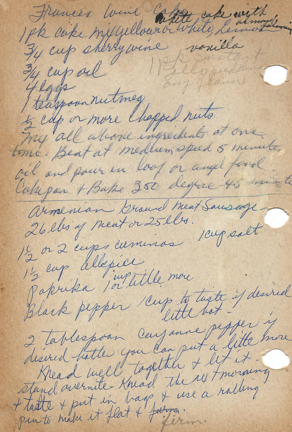 Frances Wine Cake
white cake with
almond flavoring
1 pk cake mix yellow or white
3/4 cup sherry wine
vanilla
3/4 cup oil
4 eggs
1 teaspoon nutmeg
1/2 cup or more chopped nuts
mix all above ingredients at one
time. Beat at medium speed 5 minutes
oil and pour in loaf or angel food
cake pan & Bake 350 degree 45 minutes
Armenian Ground Meat Sausage
26 lbs of meat or 25 lbs.
1 1/2 or 2 cups cuminos
1 cup salt
1 1/2 cup allspice
Paprika 1 cup or little more
Black pepper 1 cup to taste if desired
little hot
2 Tablespoon cayonne pepper if
desired hotter you can put a little more
Knead well together & let it
stand overnite Knead the next morning
& taste & put in bags & use a rolling
pin to make it flat & firm.
firm.